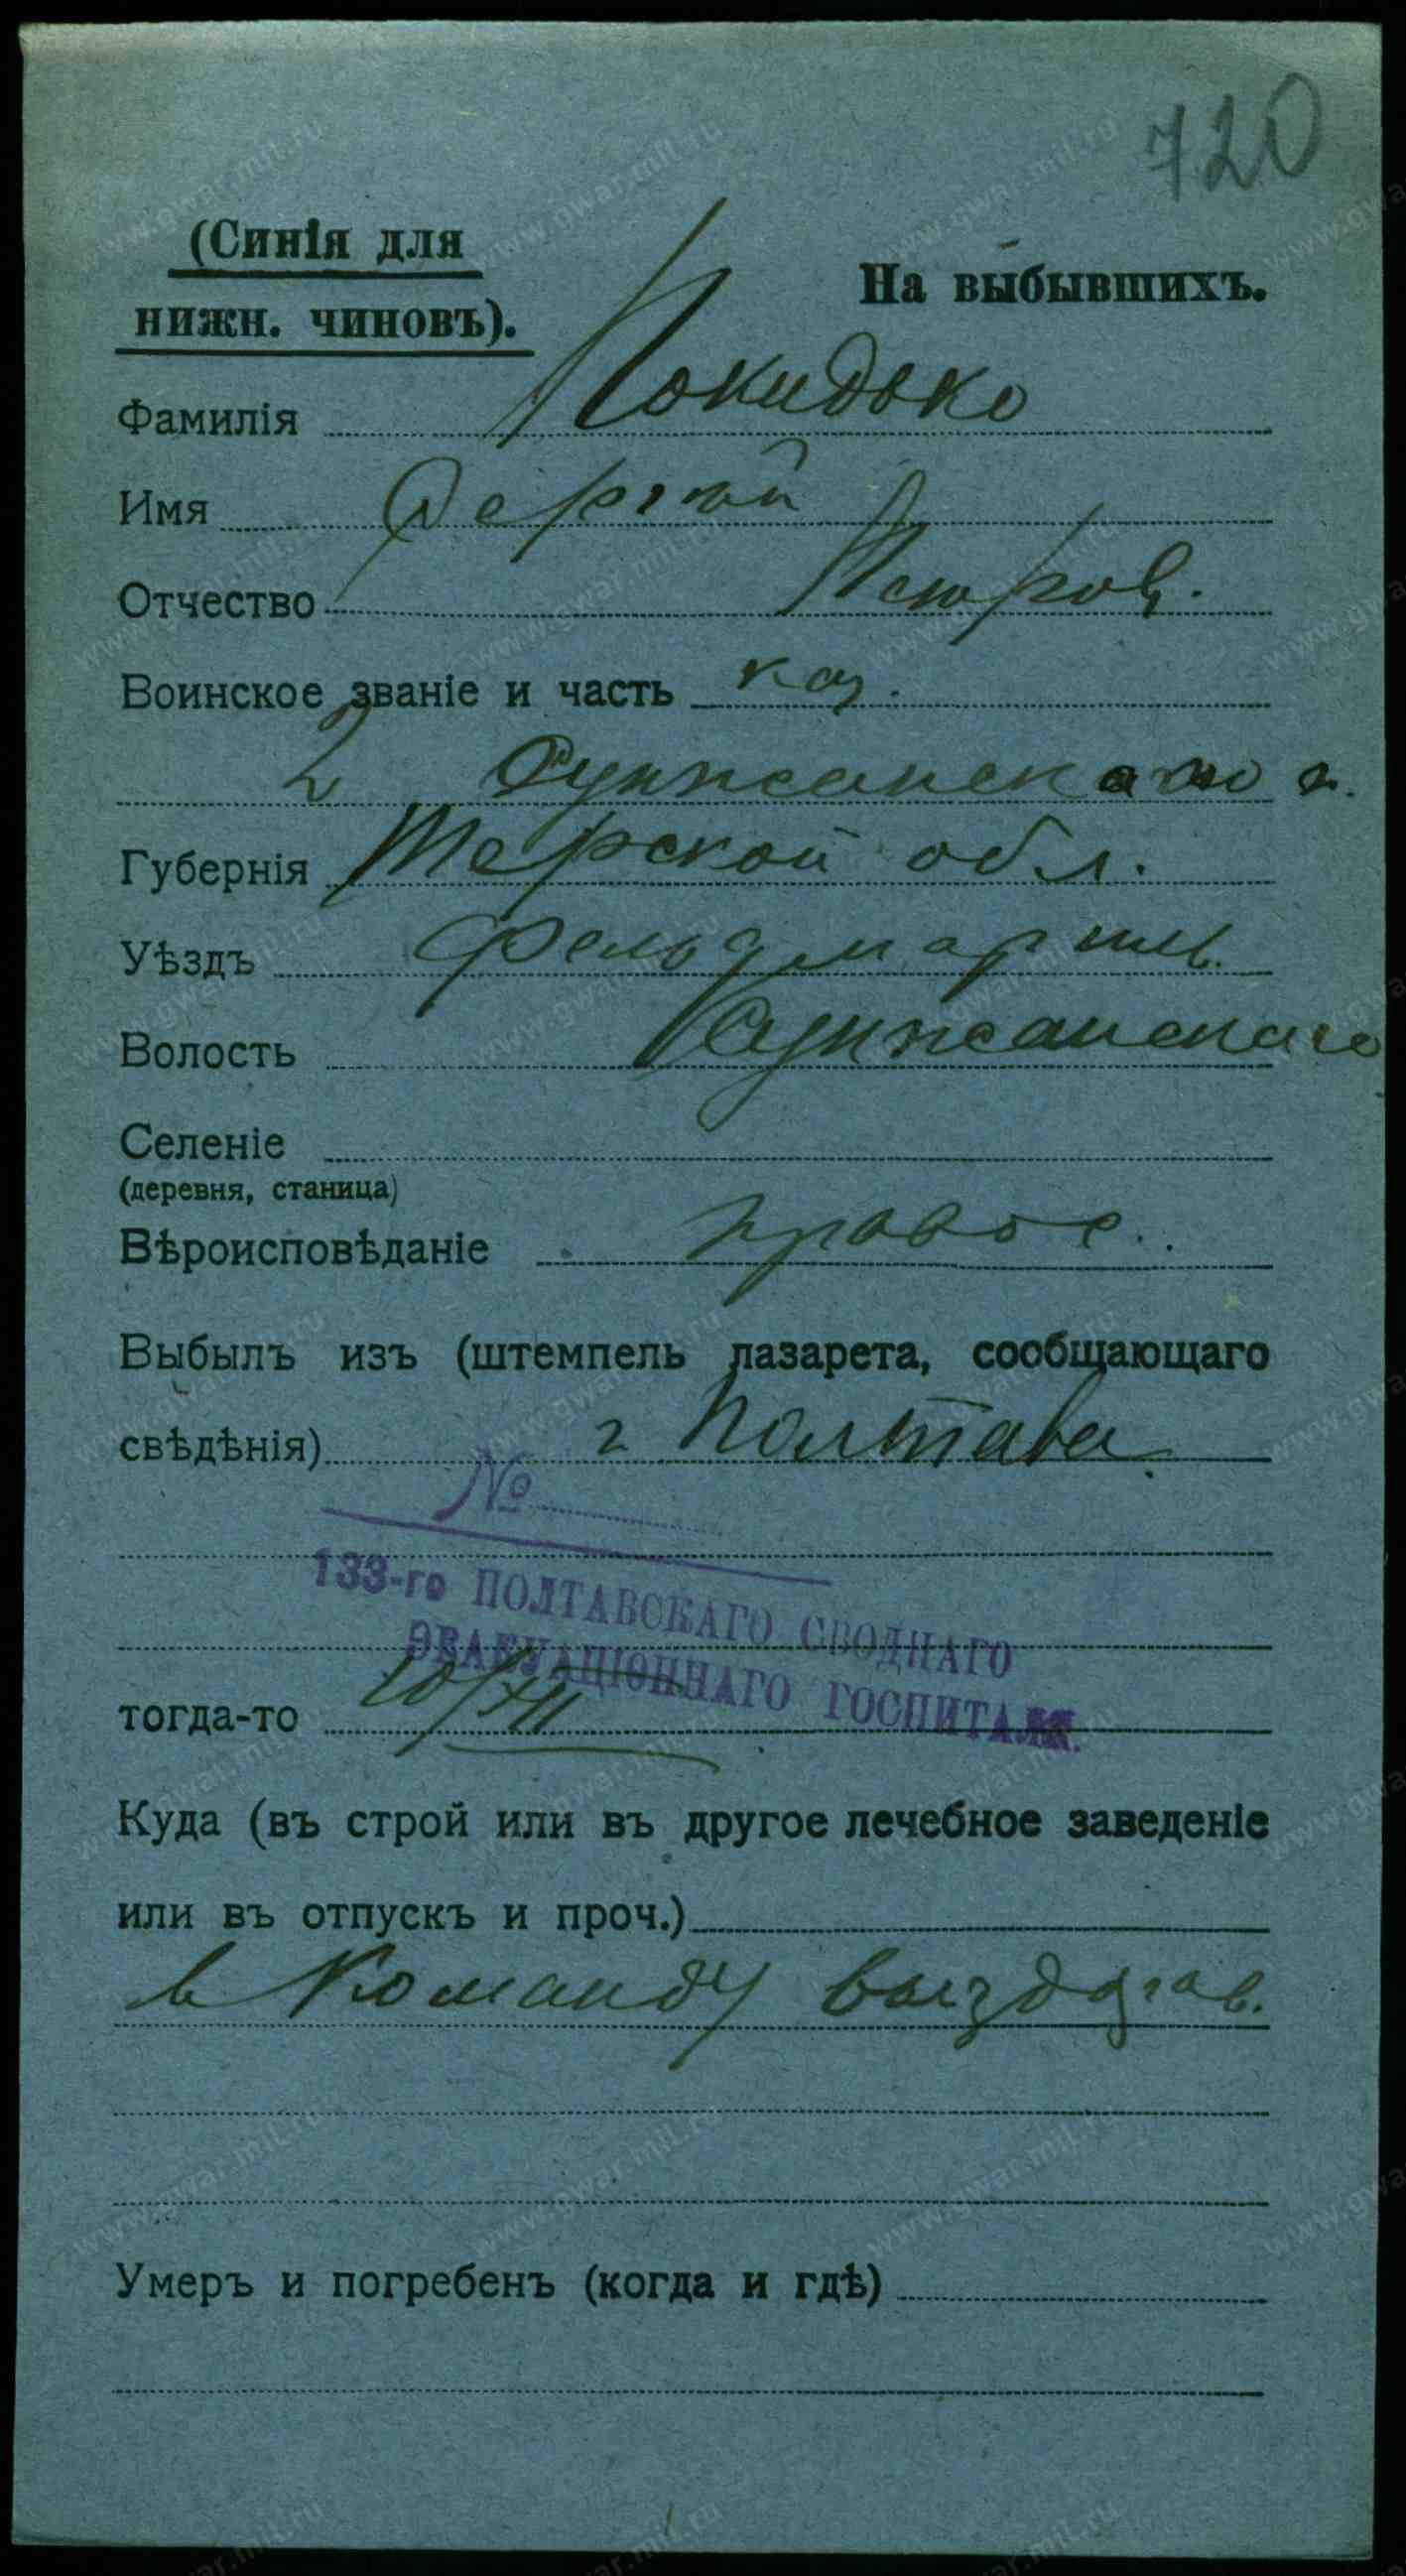 720
(Синія для
нижн. чиновъ).
На выбывшихъ.
Фамилія Покидько
Имя Сергѣй
Отчество Петров.
Воинское званіе и часть каз.
2 Сунженскаго п.
Губернія Терской обл.
Уѣздъ Фельдмарш.
Волость Сунженскаго
Селеніе
(деревня, станица)
Вѣроисповѣданіе правос.
Выбылъ изъ (штемпель лазарета, сообщающаго
свѣдѣнія) г Полтава
№
133-го ПОЛТАВСКАГО СВОДНАГО
ЭВАКУАЦІОННАГО ГОСПИТАЛЯ.
тогда-то 20/XII
Куда (въ строй или въ другое лечебное заведеніе
или въ отпускъ и проч.)
в Команду выздорав.
Умеръ и погребенъ (когда и гдѣ)